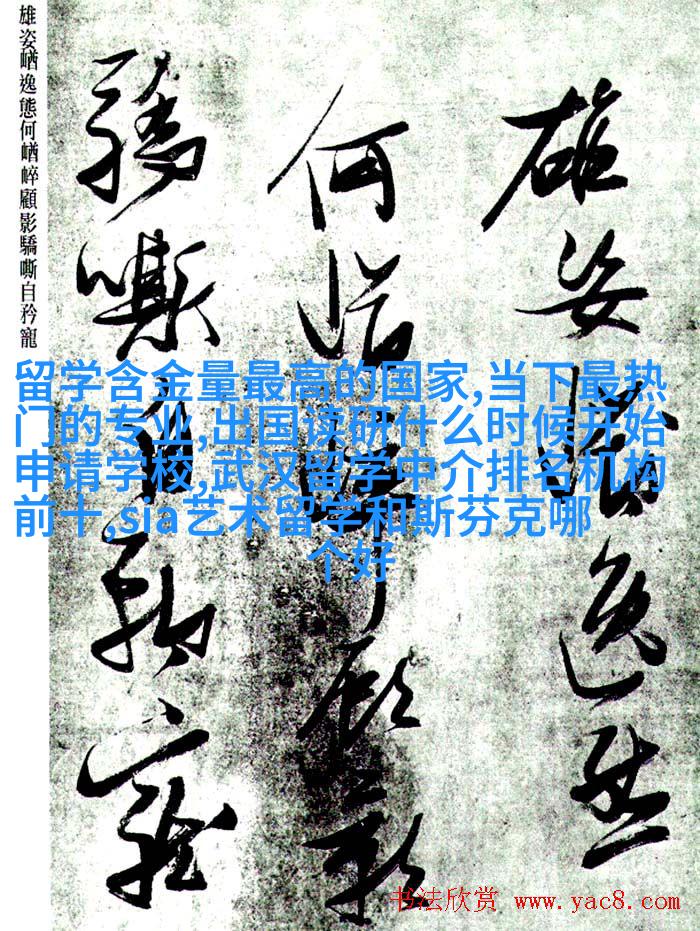 雄姿崷逸態
何崷崒顧影
驕嘶自矜寵
雄姿崷逸態何崷崒顧影驕嘶自矜寵
留学含金量最高的国家,当下最热
门的专业,出国读研什么时候开始
申请学校,武汉留学中介排名机构
前十,sia艺术留学和斯芬克哪
个好
书法欣赏 www.yac8.com